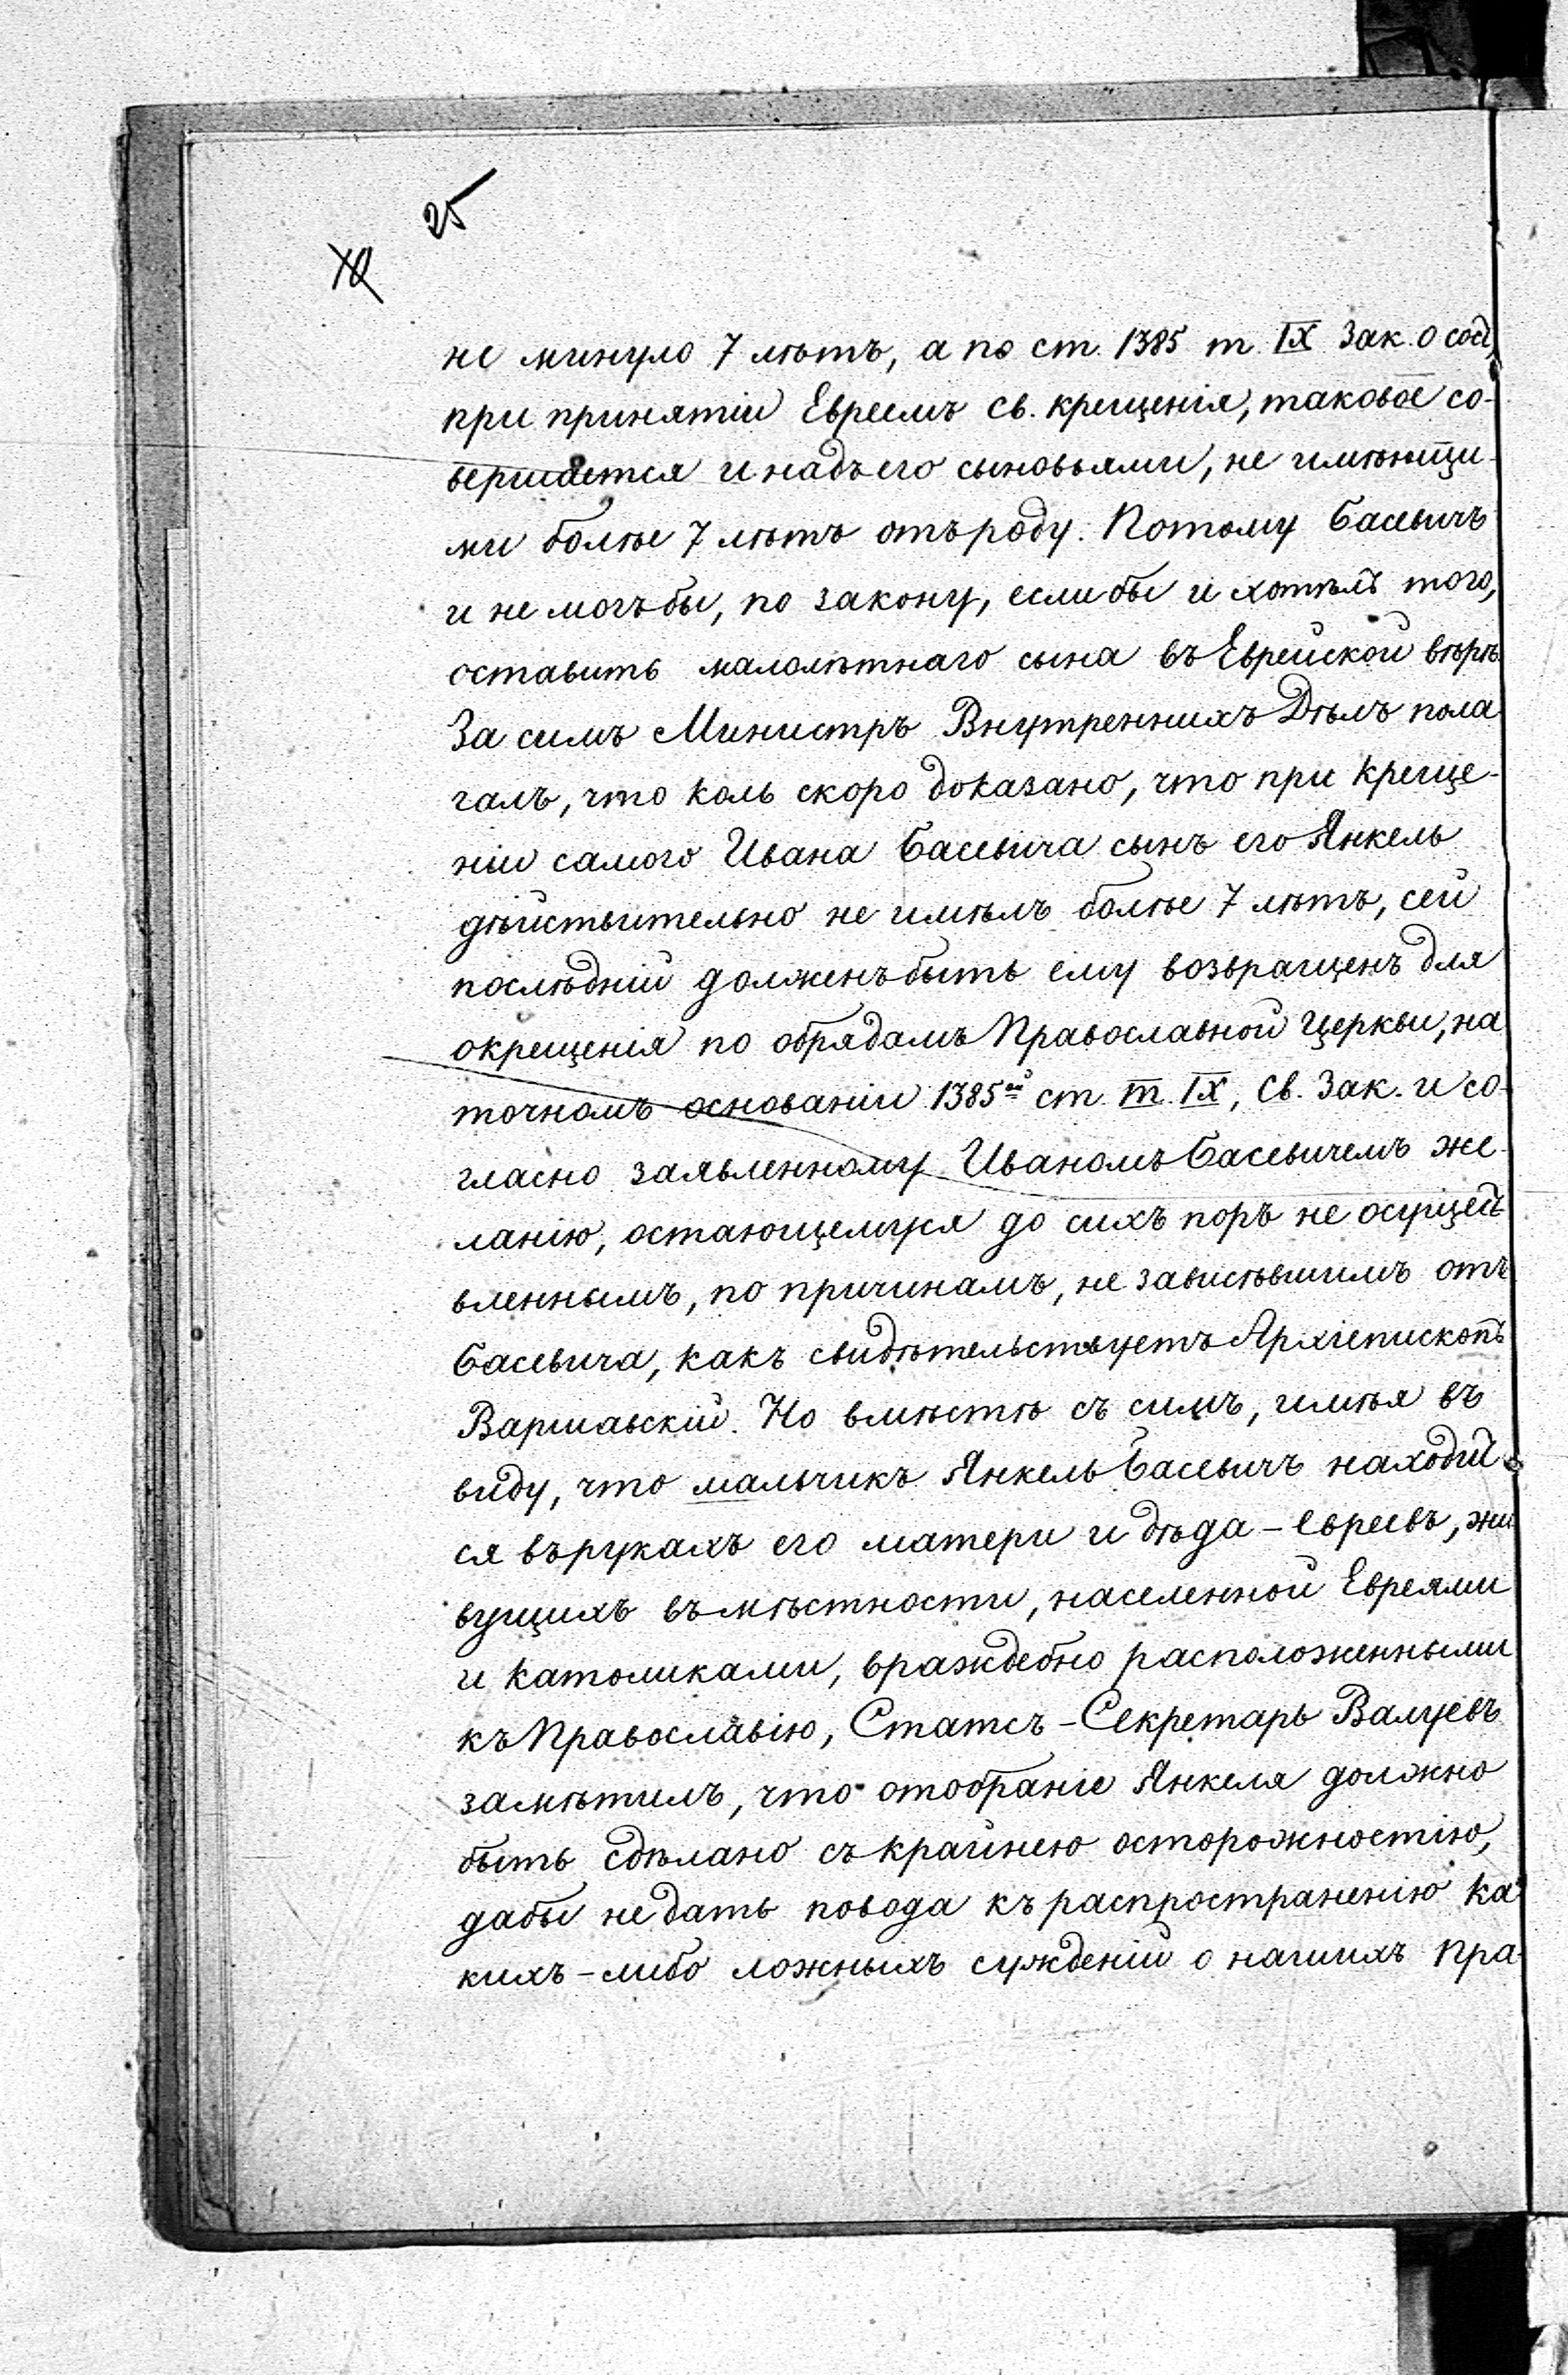 25
не минуло 7 лѣтъ, а по ст. 1385 т. IX Зак. о сост,
при принятіи Евреемъ Св. крещенія, таковое со-
вершается и надъ его сыновьями, не имѣющи-
ми болѣе 7 лѣтъ отъ роду. Потому Басевичъ
и не могъ бы, по закону, если бы и хотѣлъ того,
оставить малолѣтнаго сына въ Еврейской вѣрѣ.
За симъ Министръ Внутреннихъ Дѣлъ пола-
галъ, что коль скоро доказано, что при креще-
ніи самого Ивана Басевича сынъ его Янкель
дѣйствительно не имѣлъ болѣе 7 лѣтъ, сей
послѣдній долженъ быть ему возвращенъ для
окрещенія по обрядамъ Православной Церкви, на
точномъ основаніи 1385ой ст. т. IX, Св. Зак. и со-
гласно заявленному Иваномъ Басевичемъ же-
ланію, остающемуся до сихъ поръ не осущест-
вленнымъ, по причинамъ, не зависѣвшимъ отъ
Басевича, какъ свидѣтельствуетъ Архіепископъ
Варшавскій. Но вмѣстѣ съ симъ, имѣя въ
виду, что мальчикъ Янкель Басевичъ находит-
ся въ рукахъ его матери и дѣда - евреевъ, жи-
вущихъ въ мѣстности, населенной Евреями
и католиками, враждебно расположенными
къ Православію, Статсъ-Секретарь Валуевъ
замѣтилъ, что отобраніе Янкеля должно
быть сдѣлано съ крайнею осторожностію,
дабы не дать повода къ распространенію ка-
кихъ-либо ложныхъ сужденій о нашихъ пра-